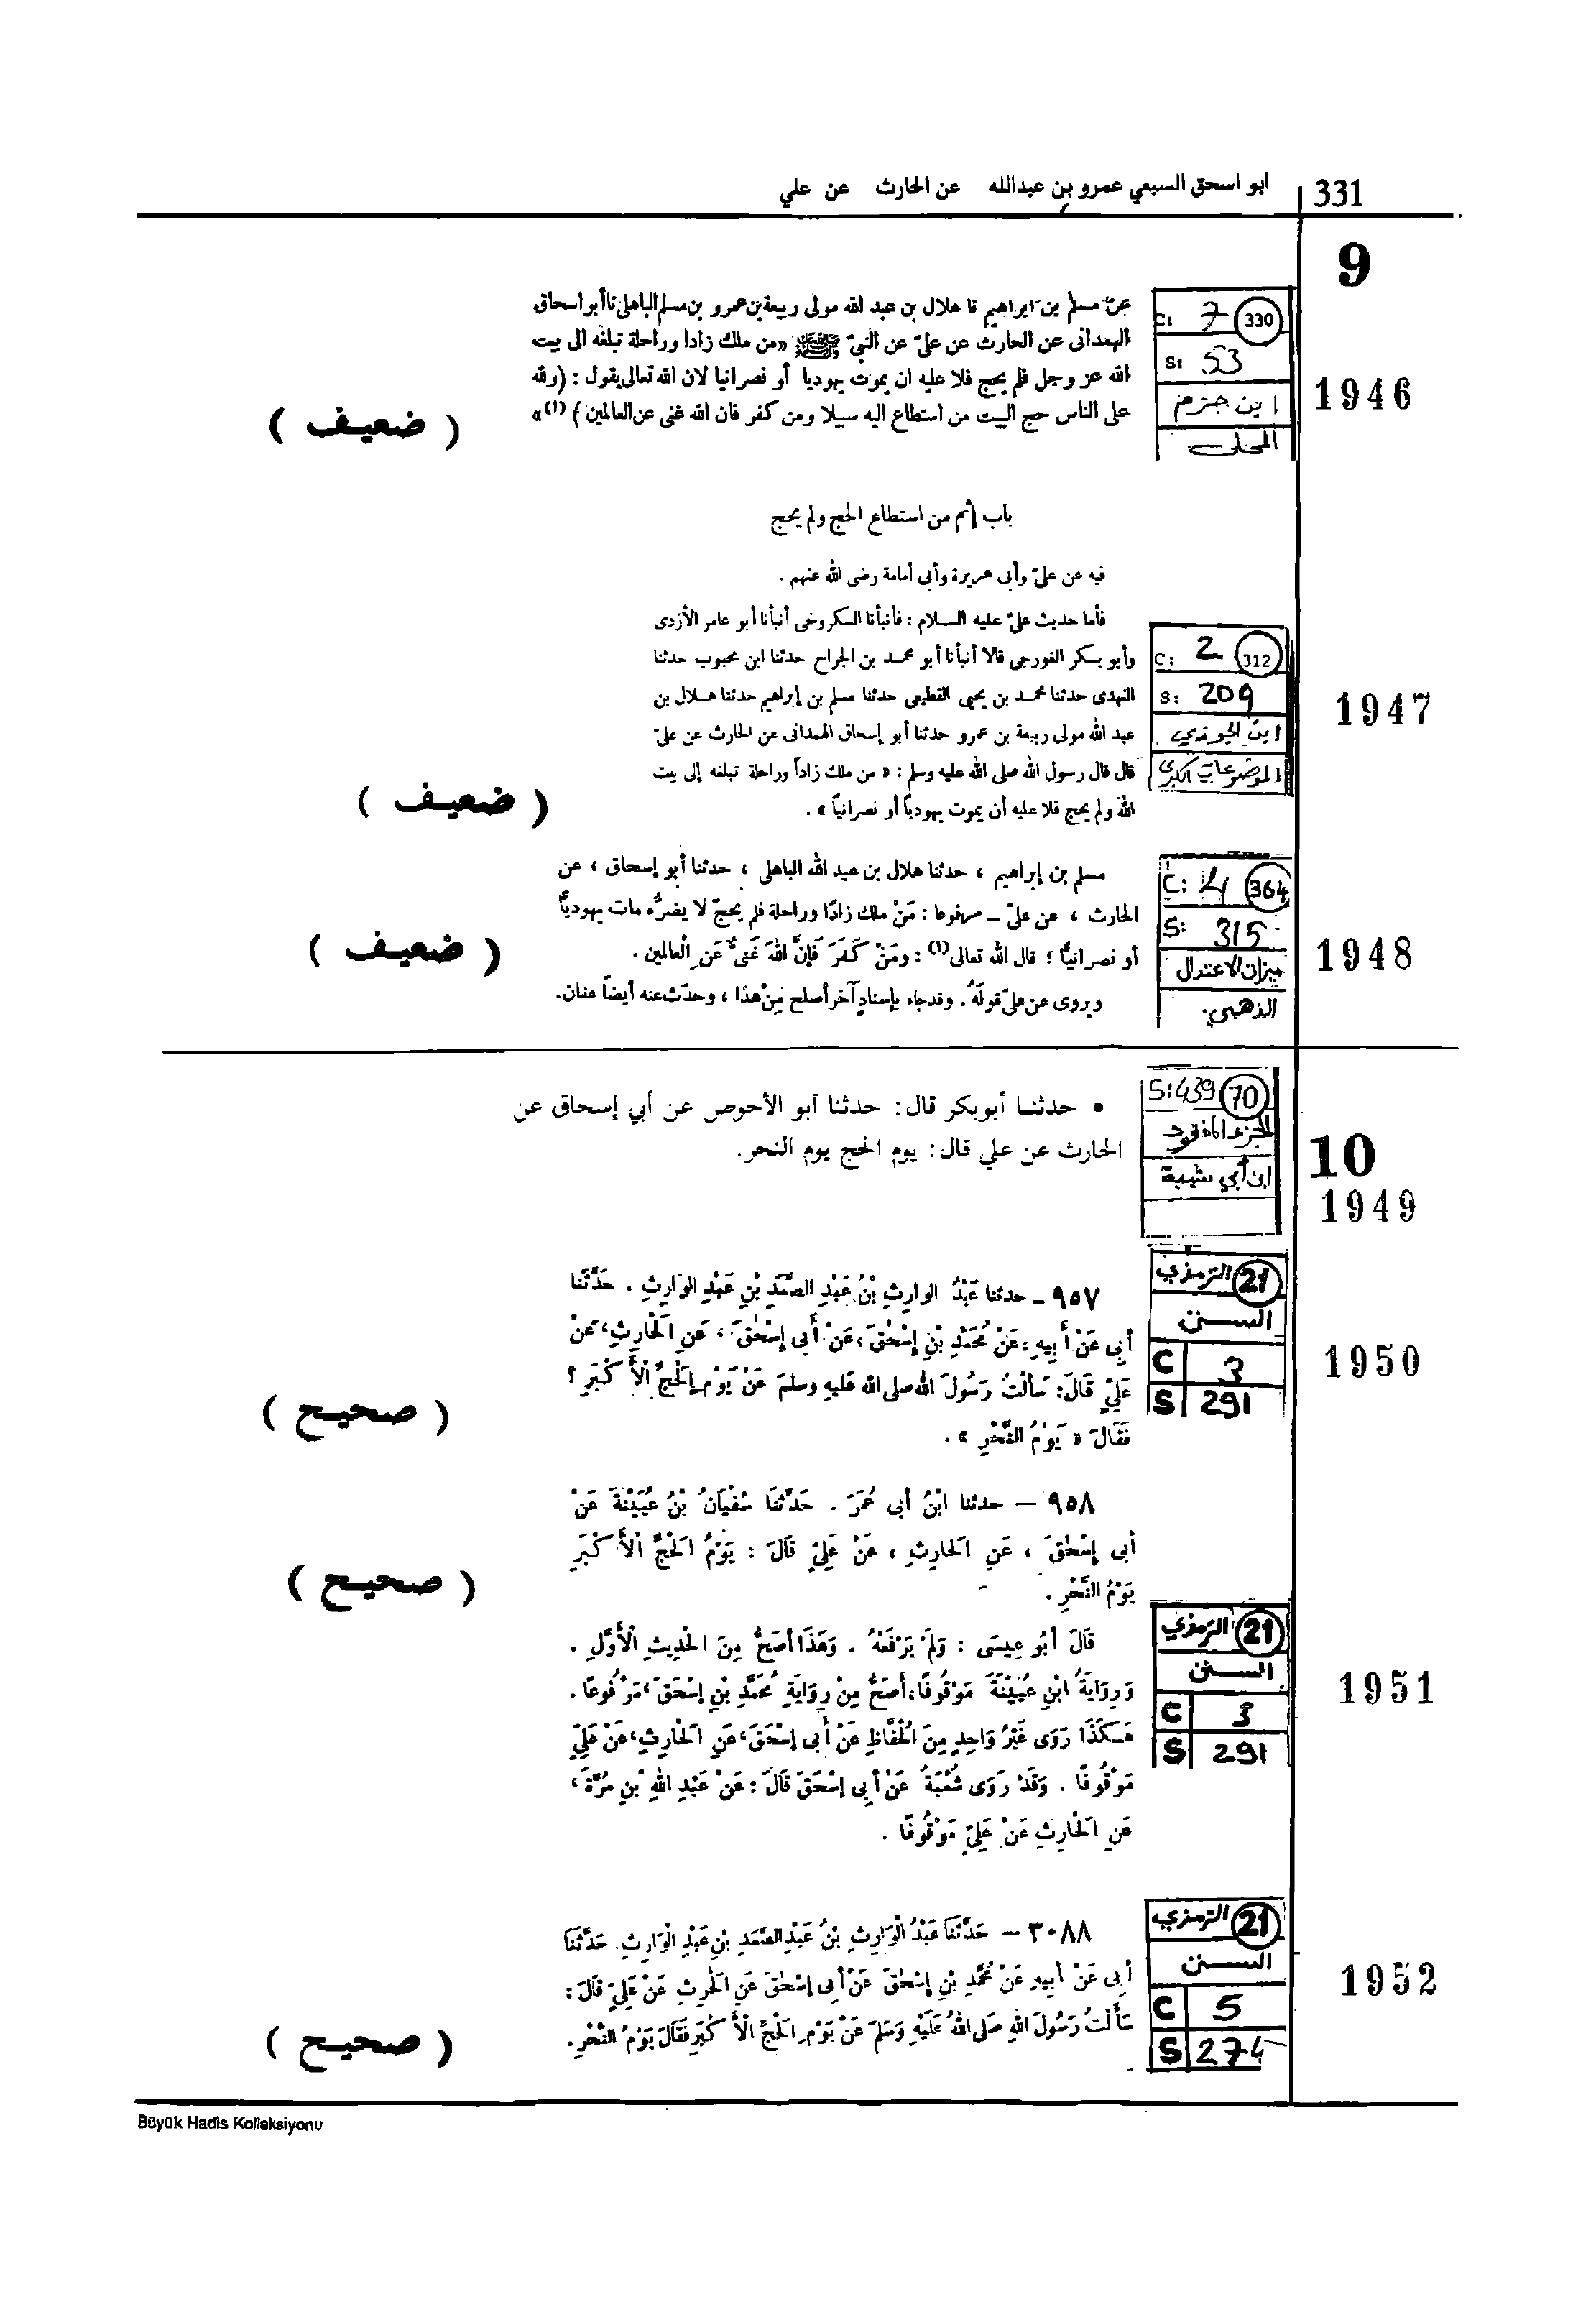 331
ابو اسحق السبيعي عمرو بن عبدالله عن الحارث عن علي
9
عن مسلم بن ابراهيم نا هلال بن عبد الله مولى ربيعة بن عمرو بن مسلم الباهلى نا أبو اسحاق
الهمدانى عن الحارث عن علىّ عن النبيّ ﷺ «من ملك زادا وراحلة تبلغه الى بيت
الله عز وجل فلم يحج فلا عليه ان يموت يهوديا أو نصرانيا لان الله تعالى يقول : (ولله
على الناس حج البيت من استطاع اليه سبيلا ومن كفر فان الله غنى عن العالمين ) (١)»
( ضعيف )
C: 7 330
S: 53
ابن حزم
المحلى
1946
باب إثم من استطاع الحج ولم يحج
فيه عن علىّ وأبى هريرة وأبى أمامة رضى الله عنهم .
فأما حديث علىّ عليه السلام : فأنبأنا الكروخى أنبأنا أبو عامر الأزدى
وأبو بكر الغورجى قالا أنبأنا أبو محمد بن الجراح حدثنا ابن محبوب حدثنا
النهدى حدثنا محمد بن يحيى القطيعى حدثنا مسلم بن إبراهيم حدثنا هلال بن
عبد الله مولى ربيعة بن عمرو حدثنا أبو إسحاق الهمدانى عن الحارث عن علىّ
قال قال رسول الله صلى الله عليه وسلم : « من ملك زاداً وراحلة تبلغه إلى بيت
الله ولم يحج فلا عليه أن يموت يهودياً أو نصرانياً » .
( ضعيف )
C: 2 312
S: 209
ابن الجوزي
الموضوعات الكبرى
1947
مسلم بن إبراهيم ، حدثنا هلال بن عبد الله الباهلى ، حدثنا أبو إسحاق ، عن
الحارث ، عن علىّ - مرفوعا : مَنْ ملك زادًا وراحلة فلم يحجّ لا يضرُّه مات يهوديًّا
أو نصرانيًّا ؛ قال الله تعالى(١) : ومَنْ كَفَرَ فَإِنَّ اللهَ غَنىٌّ عَنِ الْعالمين .
ويروى عن علىّ قولَهُ . وقد جاء بإسنادٍ آخر أصلح مِنْ هذا ، وحدّث عنه أيضاً عفان.
( ضعيف )
C: 4 364
S: 315
ميزان الاعتدال
الذهبي
1948
• حدثنا أبوبكر قال: حدثنا أبو الأحوص عن أبي إسحاق عن
الحارث عن علي قال: يوم الحج يوم النحر.
S:439 70
الجزء المفقود
ابن أبي شيبة
10
1949
٩٥٧ - حدثنا عَبْدُ الوارِثِ بْنُ عَبْدِ الصَّمَدِ بْنِ عَبْدِ الوَارِثِ . حَدَّثَنَا
أَبِى عَنْ أَبِيهِ ، عَنْ مُحَمَّدِ بْنِ إِسْحٰقَ ، عَنْ أَبِى إِسْحٰقَ ، عَنِ الْحَارِثِ ، عَنْ
عَلِيٍّ قَالَ: سَأَلْتُ رَسُولَ اللهِ صلى الله عليه وسلمَ عَنْ يَوْمِ الْحَجِّ الْأَكْبَرِ ؟
فَقَالَ « يَوْمُ النَّحْرِ » .
( صحيح )
21 الترمذي
السنن
C 3
S 291
1950
٩٥٨ — حدثنا ابْنُ أبى عُمَرَ . حَدَّثَنَا سُفْيَانُ بْنُ عُيَيْنَةَ عَنْ
أبى إِسْحٰقَ ، عَنِ الْحَارِثِ ، عَنْ عَلِيٍّ قَالَ : يَوْمُ الْحَجِّ الْأَكْبَرِ
يَوْمُ النَّحْرِ .
( صحيح )
قَالَ أَبُو عِيسَى : وَلَمْ يَرْفَعْهُ . وَهَذَا أَصَحُّ مِنَ الْحَدِيثِ الْأَوَّلِ .
وَرِوَايَةُ ابْنِ عُيَيْنَةَ مَوْقُوفًا، أَصَحُّ مِنْ رِوَايَةِ مُحَمَّدِ بْنِ إِسْحَقَ ، مَرْفُوعًا .
هَكَذَا رَوَى غَيْرُ وَاحِدٍ مِنَ الْحُفَّاظِ عَنْ أَبِى إِسْحَقَ ، عَنِ الْحَارِثِ ، عَنْ عَلِيٍّ
مَوْقُوفًا . وَقَدْ رَوَى شُعْبَةُ عَنْ أَبِى إِسْحَقَ قَالَ : عَنْ عَبْدِ اللهِ بْنِ مُرَّةَ ،
عَنِ الْحَارِثِ عَنْ عَلِيٍّ مَوْقُوفًا .
21 الترمذي
السنن
C 3
S 291
1951
٣٠٨٨ - حَدَّثَنَا عَبْدُ الْوَارِثِ بْنُ عَبْدِ الصَّمَدِ بْنِ عَبْدِ الْوَارِثِ. حَدَّثَنَا
أَبِى عَنْ أَبِيهِ عَنْ مُحَمَّدِ بْنِ إِسْحٰقَ عَنْ أَبِى إِسْحٰقَ عَنِ الْحٰرِثِ عَنْ عَلِيٍّ قَالَ :
سَأَلْتُ رَسُولَ اللهِ صَلَى اللهُ عَلَيْهِ وَسَلَّمَ عَنْ يَوْمِ الْحَجِّ الْأَكْبَرِ فَقَالَ يَوْمُ النَّحْرِ .
( صحيح )
21 الترمذي
السنن
C 5
S 274
1952
Büyük Hadis Kolleksiyonu